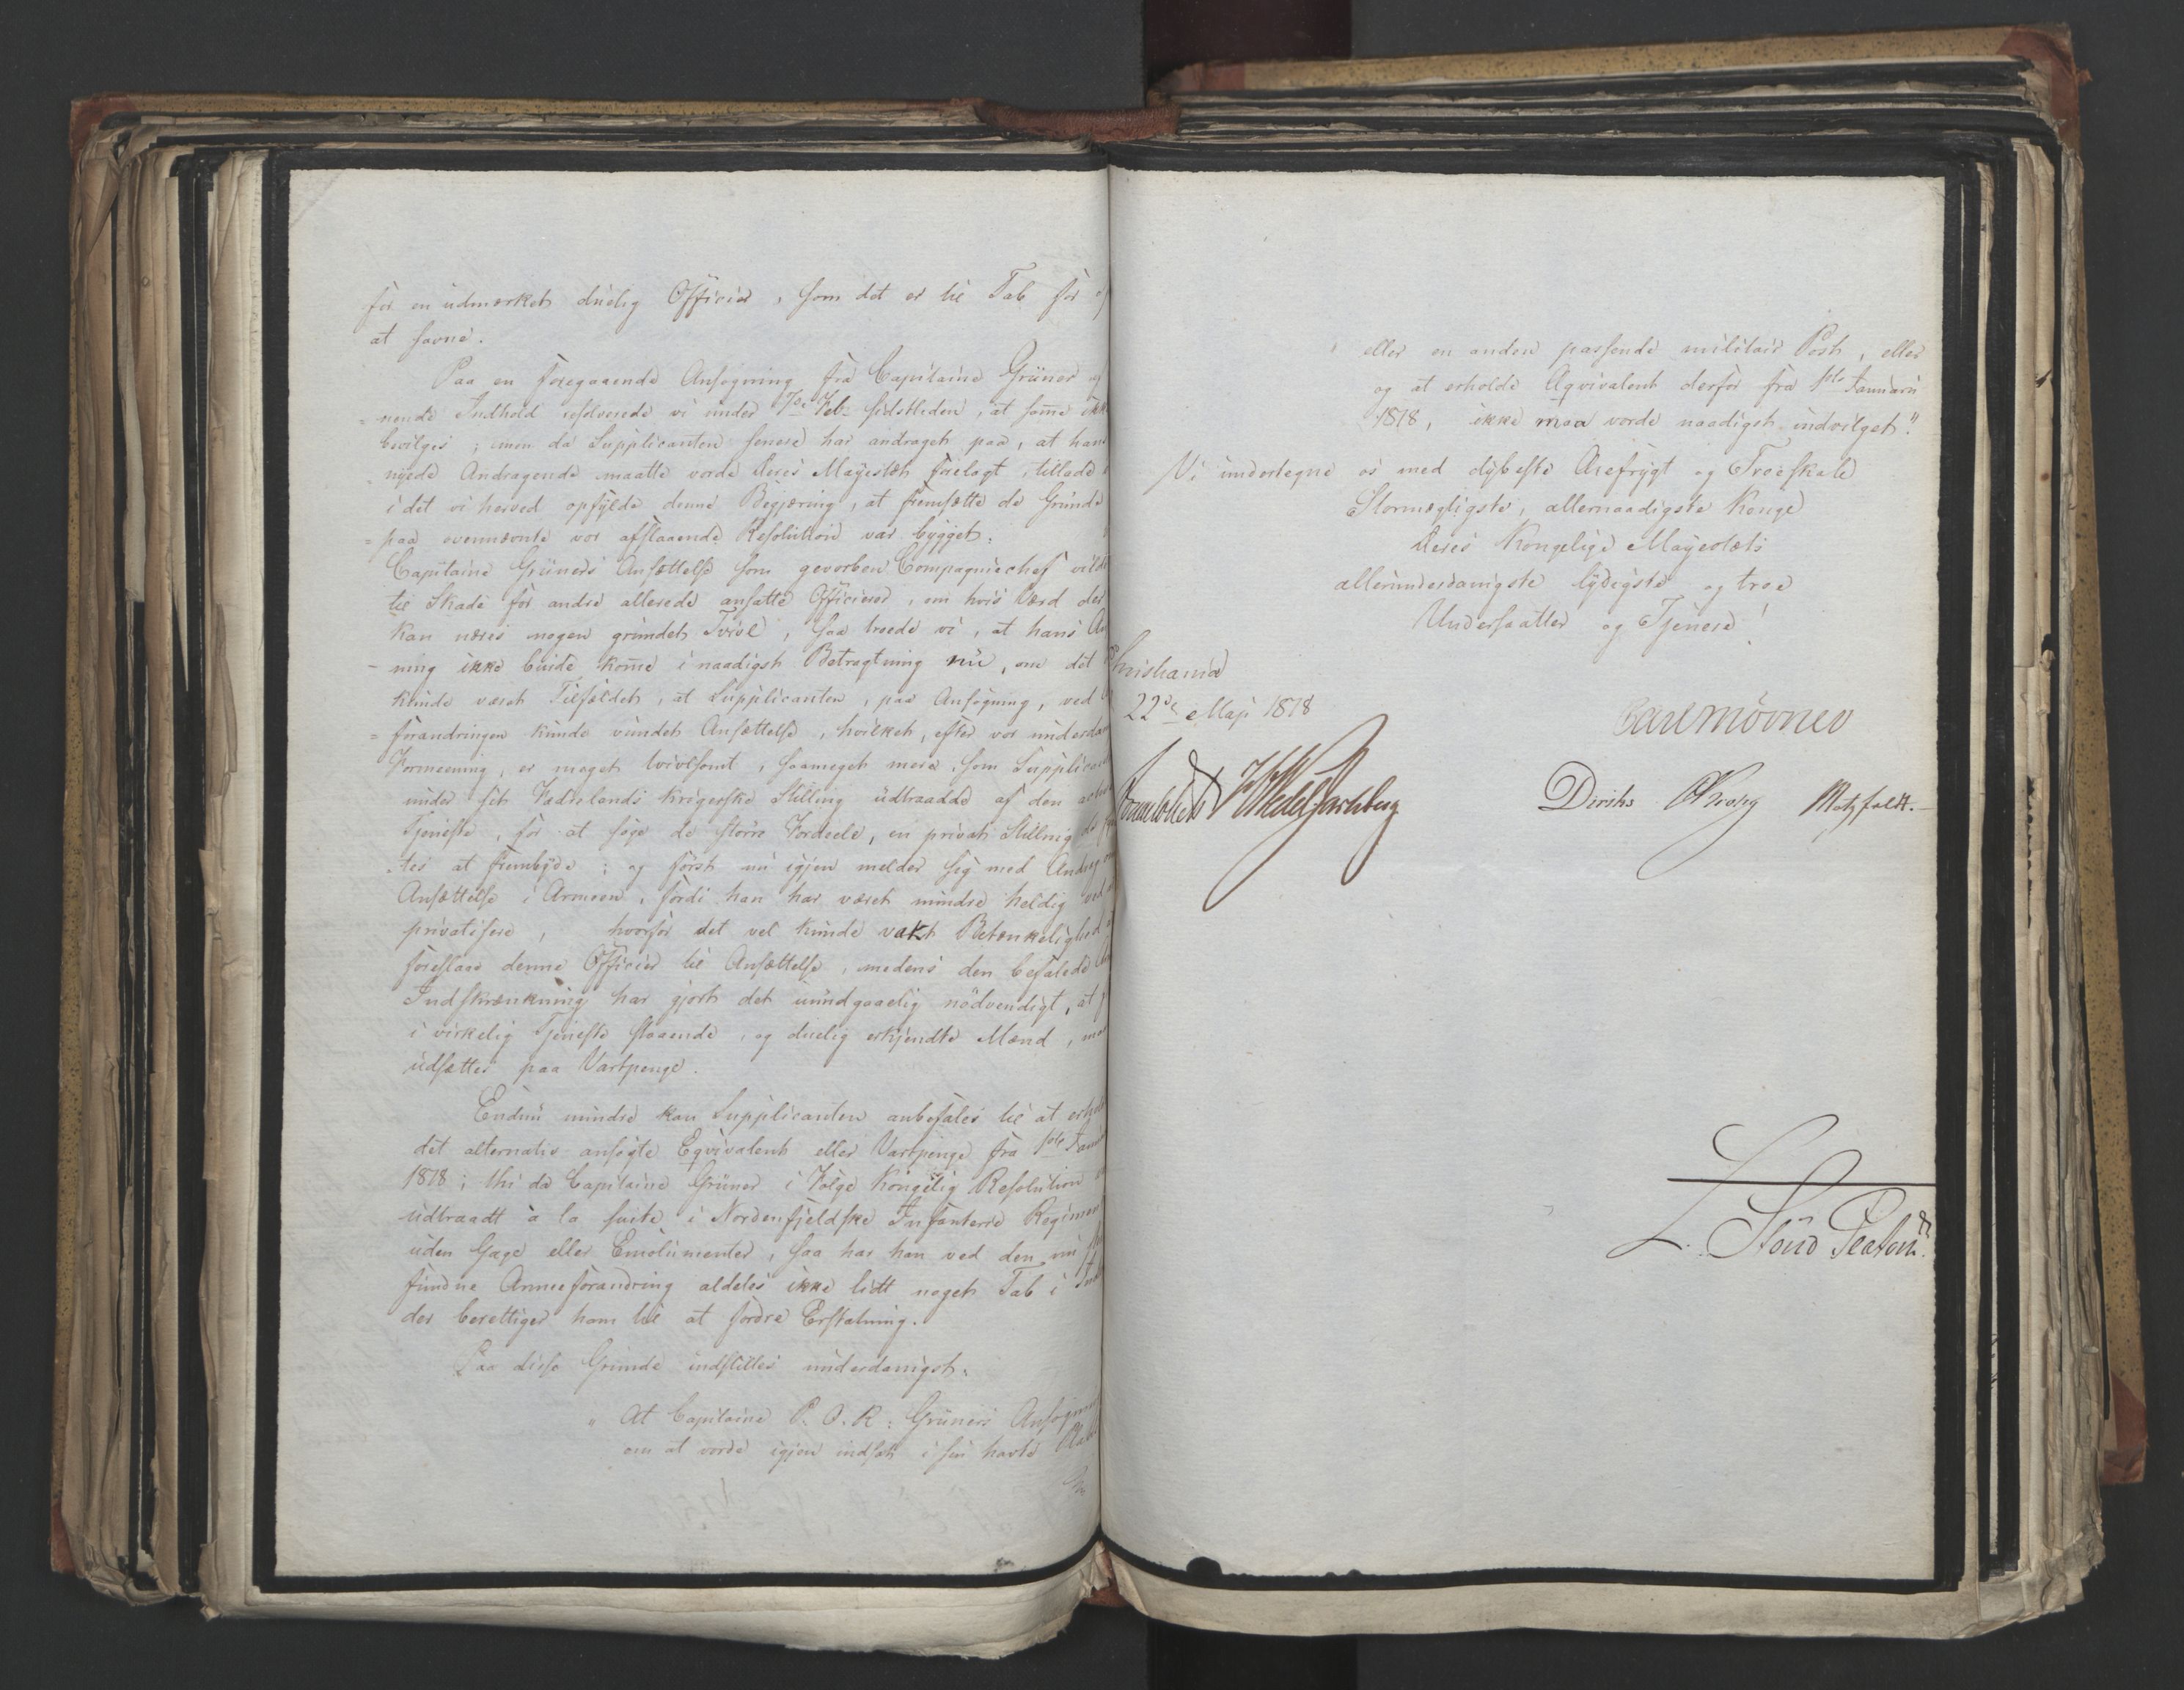 for en udmærket duelig Officier, som det er til Tab for
at savne.
Paa en foregaaende Ansøgning fra Capitaine Grüner
=nende Indhold resolverede vi under 7de Feb: sidstleden, at samme ikke
bevilges; men da Supplicanten senere har andraget paa, at hans
nyede Andragende maatte vorde Deres Mayestæt forelagt, tillade
i det vi herved opfylde denne Begjæring, at fremsætte de Grunde
=paa ovennævnte vor afslaaende Resolution var bygget:
Capitaine Grüners Ansættelse som gevorben Compagniechef vilde
til Skade for andre allerede ansatte Officierer, om hvis Værd der
kan næres nogen grundet Tvivl, saa troede vi, at hans An
-ning ikke burde komme i naadigst Betragtning nu, om det
kunde været Tilfældet, at Supplicanten, paa Ansøgning, ved
=forandringen kunde vundet Ansættelse, hvilket, efter vor underdan
Formeening, er meget tvivlsomt, saameget mere, som Supplican
under sit Fædrelands krigerske Stilling udtraadde af den active
Tjeneste, for at søge de større Fordeele, en privat Stilling
=tes at frembyde; og først nu igjen melder sig med Andrag
Ansættelse i Armeen, fordi han har været mindre heldig ved
privatisere, hvorfor det vel kunde vakt Betænkelighed
foreslaae denne Officier til Ansættelse, medens den befalede
Indskrænkning har gjort det uundgaaelig nödvendigt, at
i virkelig Tjeneste staaende, og duelig erkjendte Mænd, maa
udsættes paa Vartpenge.
Endnu mindre kan Supplicanten anbefales til at erholde
det alternativ ansøgte Eqvivalent eller Vartpenge fra 1ste Janu
1818; thi da Capitaine Grüner i Følge Kongelig Resolution
udtraadt à la suite i Nordenfjeldske Infanterie Regiment
uden Gage eller Emolumenter, saa har han ved den nu
fundne Armeeforandring aldeles ikke lidt noget Tab i
der berettiger ham til at fordre Erstatning.
Paa disse Grunde indstilles underdanigst:
"At Capitaine P. O. R: Grüners Ansøgning
om at vorde igjen indsat i sin havte
eller en anden passende militair Post, eller
og at erholde Aqvivalent derfor fra 1ste Januarii
1818, ikke maa vorde naadigst indvilget."
Vi undertegne os med dybeste Ærefrygt og Troeskab
Stormægtigste, allernaadigste Konge
Deres Kongelige Mayestæts
allerunderdanigste lydigste og troe
Undersaatter og Tjenere!
Christiania
22de Maji 1818
Carl Mörner
Sommerhielm
HWedelJarlsberg
Diriks
CKrohg
Motzfeldt.
L. Stoud Platou.